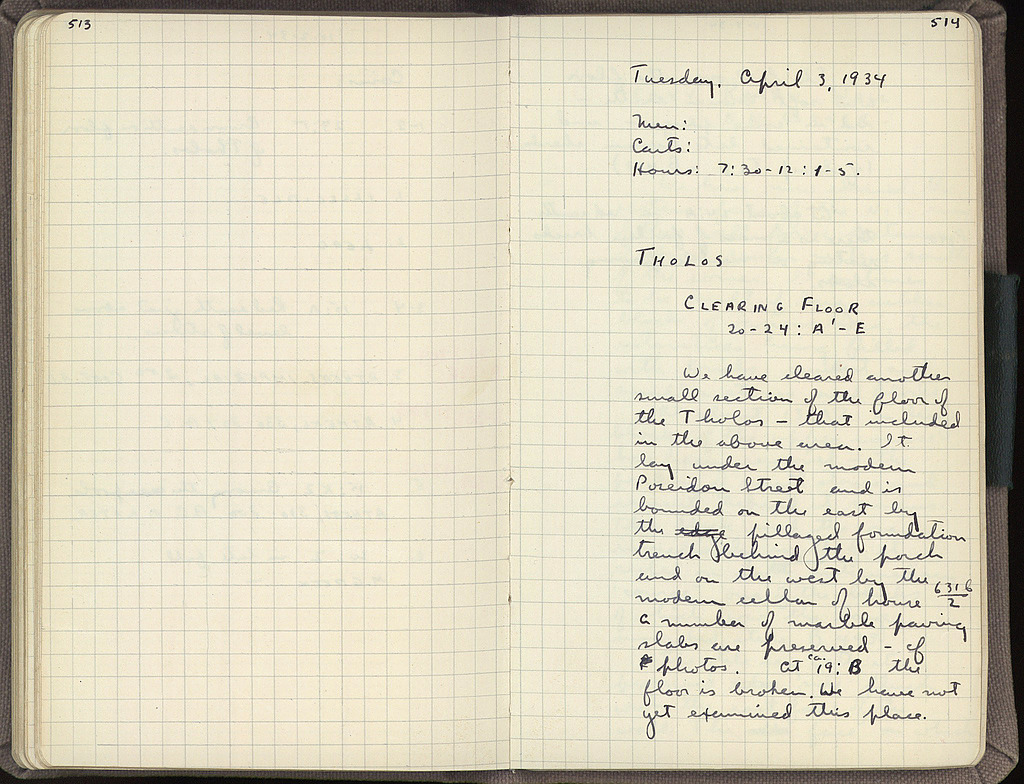 513
514
Tuesday, April 3, 1934
Men:
Carts:
Hours: 7:30-12 : 1-5.
THOLOS
CLEARING FLOOR
20-24: A'-E
We have cleared another
small section of the floor of
the Tholos – that included
in the above area. It
lay under the modern
Poseidon Street and is
bounded on the east by
the edge pillaged foundation
trench behind the porch
and on the west by the
modern cellar of house 631b/2
A number of marble paving
slabs are preserved – cf
photos. At ca. 19: B the
floor is broken. We have not
yet examined this place.